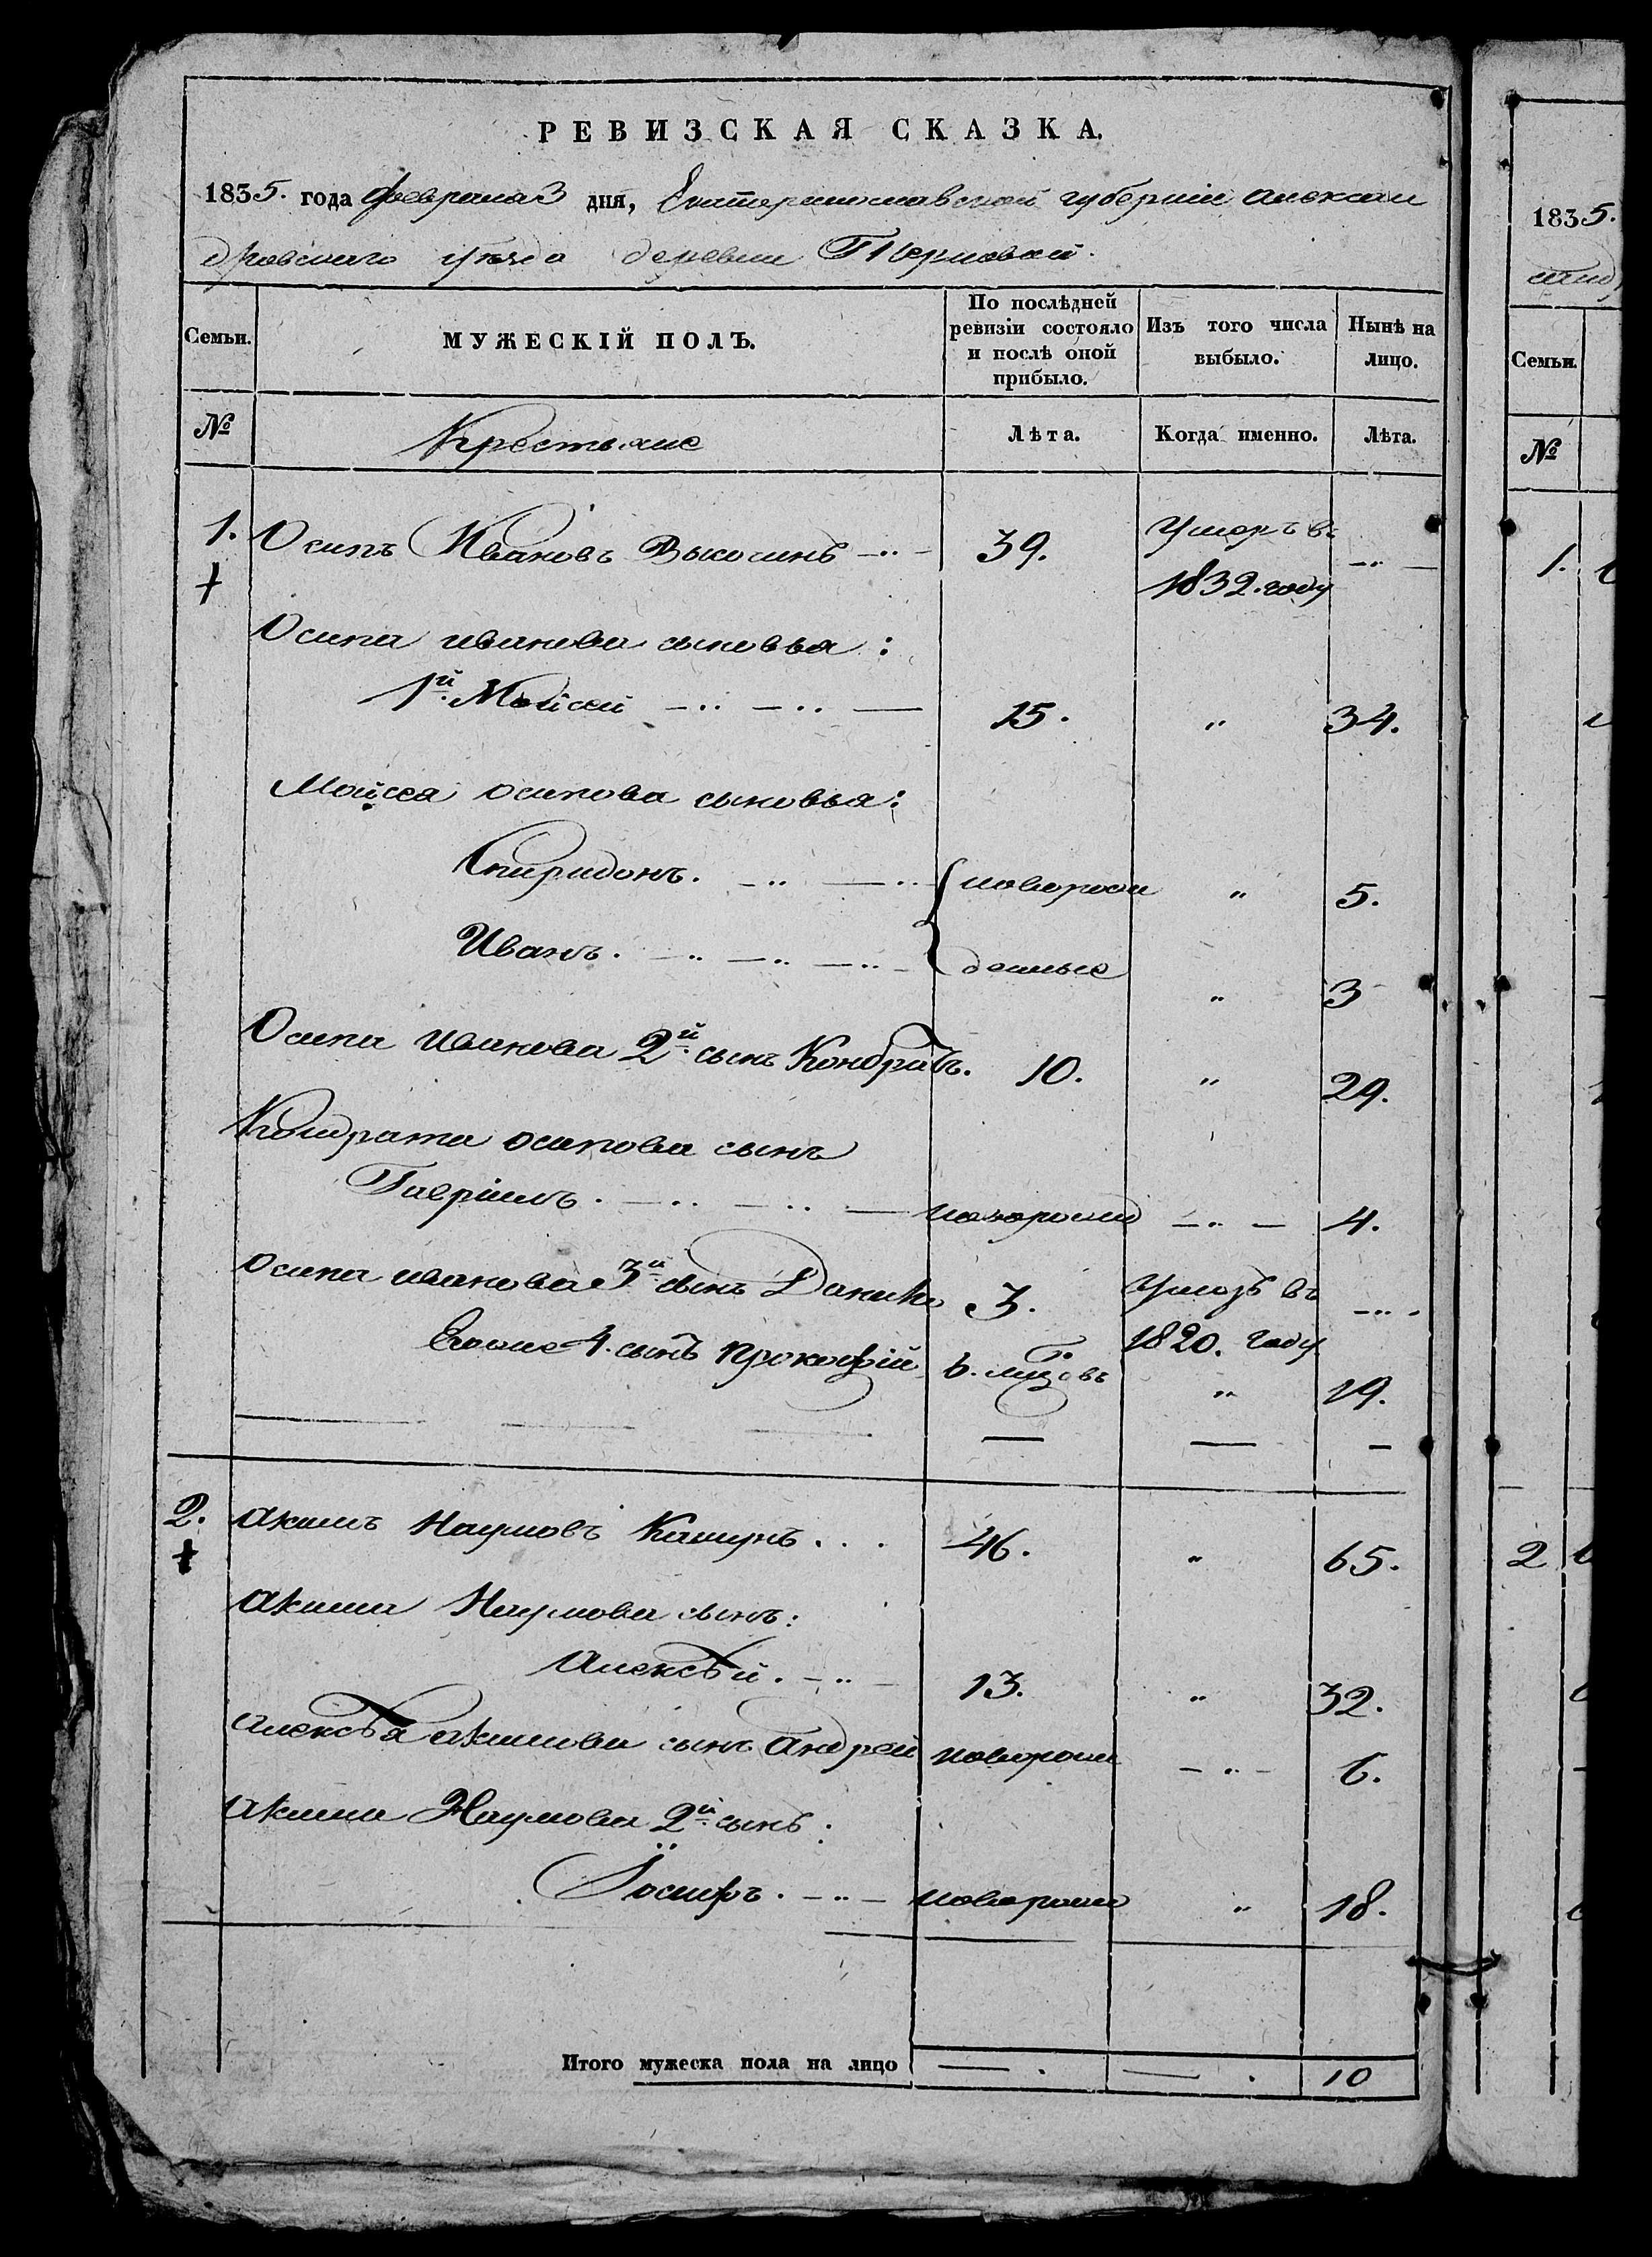 РЕВИЗСКАЯ СКАЗКА.
1835. года февраля 3 дня, Екатеринославской губерніи Алексан
дровскаго уѣзда деревни Терновой.
Семьи. МУЖЕСКІЙ ПОЛЪ. По послѣдней ревизіи состояло и послѣ оной прибыло. Изъ того числа выбыло. Нынѣ на лицо.
№ Крестьяне Лѣта. Когда именно. Лѣта.
1. Осипъ Ивановъ 39. Умеръ въ
1832. году
Осипа иванова сыновья:
1й Мойсей 15. " 34.
Мойсея осипова сыновья:
Спиридонъ. новорож " 5.
Иванъ. денные " 3
Осипа иванова 2й сынъ Кондратъ. 10. " 29.
Кондрата осипова сынъ
Гавріилъ. новорожд 4.
Осипа иванова 3й сынъ Данило 3. Умеръ въ
1820. году
Егоже 4. сынъ прокофій 6. " 19.
2. Акимъ Наумовъ 46. " 65.
Акима Наумова сынъ:
Алексѣй. 13. " 32.
Алексѣя акимова сынъ Андрей новорож 6.
Акима Наумова 2й сынъ:
Іосифъ. новорожд " 18.
Итого мужеска пола на лицо 10
1835.
Семьи.
№
1.
2